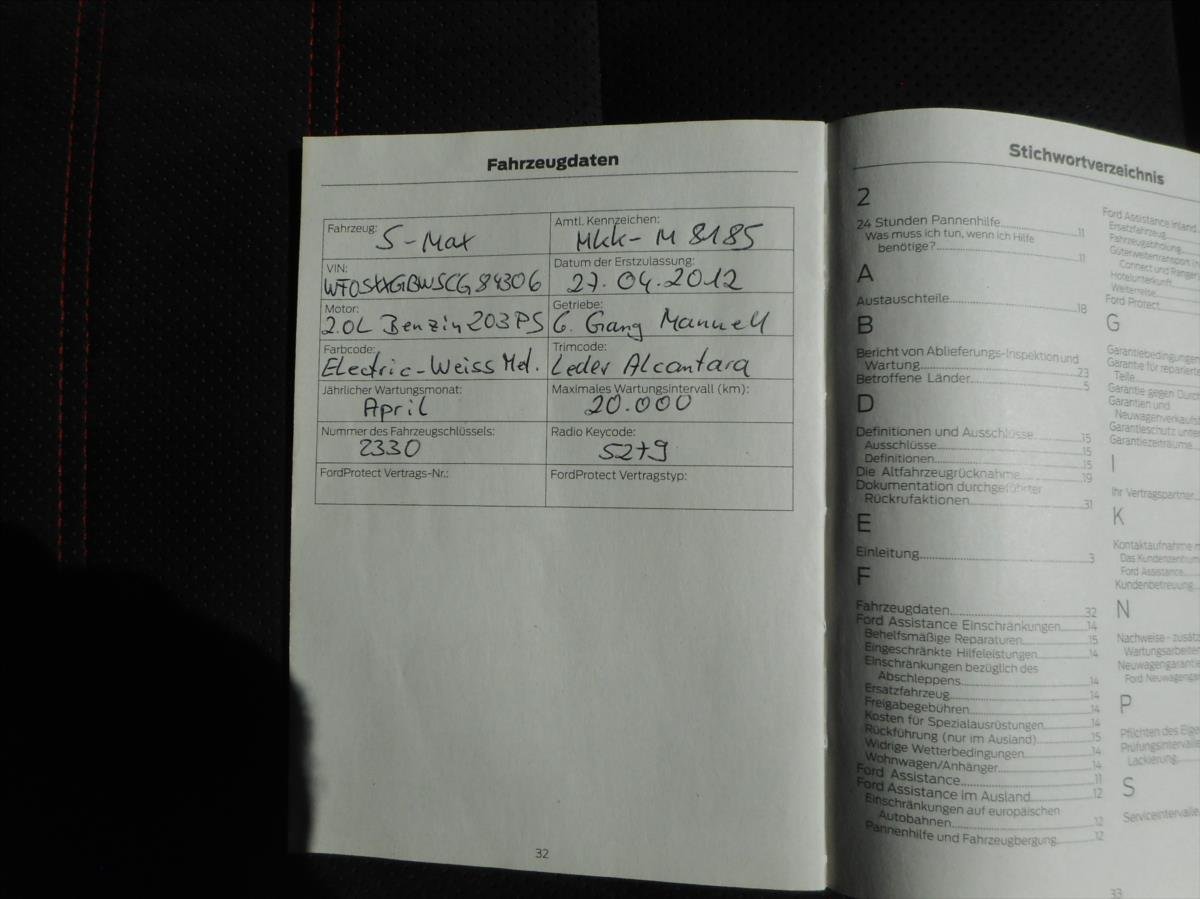 Fahrzeugdaten
Fahrzeug: S-Max
Amtl. Kennzeichen: MKK-M 8185
VIN: WF0SXXGBWSCG84306
Datum der Erstzulassung: 27.04.2012
Motor: 2.0L Benzin 203 PS
Getriebe: 6. Gang Manuell
Farbcode: Electric-Weiss Met.
Trimcode: Leder Alcantara
Jährlicher Wartungsmonat: April
Maximales Wartungsintervall (km): 20.000
Nummer des Fahrzeugschlüssels: 2330
Radio Keycode: 5279
FordProtect Vertrags-Nr.:
FordProtect Vertragstyp:
32
Stichwortverzeichnis
2
24 Stunden Pannenhilfe 11
Was muss ich tun, wenn ich Hilfe
benötige? 11
A
Austauschteile 18
B
Bericht von Ablieferungs-Inspektion und
Wartung 23
Betroffene Länder 5
D
Definitionen und Ausschlüsse 15
Ausschlüsse 15
Definitionen 15
Die Altfahrzeugrücknahme 19
Dokumentation durchgeführter
Rückrufaktionen 31
E
Einleitung 3
F
Fahrzeugdaten 32
Ford Assistance Einschränkungen 14
Behelfsmäßige Reparaturen 15
Eingeschränkte Hilfeleistungen 14
Einschränkungen bezüglich des
Abschleppens 14
Ersatzfahrzeug 14
Freigabegebühren 14
Kosten für Spezialausrüstungen 14
Rückführung (nur im Ausland) 15
Widrige Wetterbedingungen 14
Wohnwagen/Anhänger 14
Ford Assistance 11
Ford Assistance im Ausland 12
Einschränkungen auf europäischen
Autobahnen 12
Pannenhilfe und Fahrzeugbergung 12
Ford Assistance Inland
Ersatzfahrzeug
Fahrzeugabholung
Güterweitertransport
Connect und Ranger
Hotelunterkunft
Weiterreise
Ford Protect
G
Garantiebedingungen
Garantie für reparierte
Teile
Garantie gegen
Garantien und
Neuwagenverkaufs
Garantieschutz
Garantiezeiträume
I
Ihr Vertragspartner
K
Kontaktaufnahme
Das Kundenzentrum
Ford Assistance
Kundenbetreuung
N
Nachweise - zusätz
Wartungsarbeiten
Neuwagengarantie
Ford Neuwagen
P
Pflichten des
Prüfungsintervalle
Lackierung
S
Serviceintervalle
33